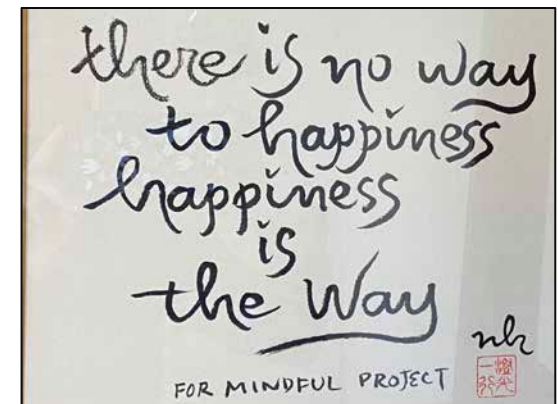 there is no way
to happiness
happiness
is
the Way
nh
FOR MINDFUL PROJECT